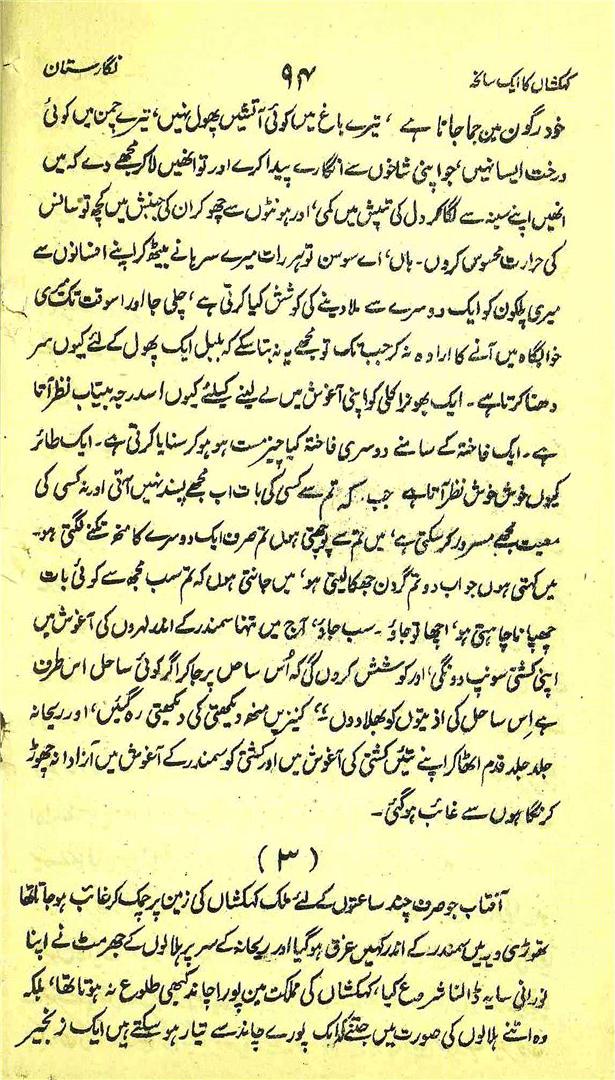 کہکشاں کا ایک سانحہ ۹۴ نگارستان
خود رگون مین جما جاتا ہے ، تیرے باغ میں کوئی آتشیں پھول نہیں، تیرے چمن میں کوئی
درخت ایسا نہیں، جو اپنی شاخوں سے انگارے پیدا کرے اور تو انھیں لاکر مجھے دے کہ میں
انھیں اپنے سینہ سے لگا کر دل کی تپیش میں کمی، اور ہونٹوں سے چھو کر ان کی جنبش میں کچھ تو سانس
کی حرارت محسوس کروں۔ ہاں، اے سوسن تو ہر رات میرے سرہانے بیٹھ کر اپنے افسانوں سے
میری پلکون کو ایک دوسرے سے ملا دینے کی کوشش کیا کرتی ہے، چلی جا اور اسوقت تک میری
خوابگاہ میں آنے کا ارادہ نہ کر جب تک تو مجھے یہ نہ بتا سکے کہ بلبل ایک پھول کے لئے کیوں سر
دھنا کرتا ہے۔ ایک بھونرا کلی کو اپنی آغوش میں لے لینے کیلئے کیوں اسدرجہ بیتاب نظر آتا
ہے۔ ایک فاختہ کے سامنے دوسری فاختہ کیا چیز مست ہو ہو کر سنایا کرتی ہے۔ ایک طائر
کیوں خوش خوش نظر آتا ہے جب کہ تم سے کسی کی بات اب مجھے پسند نہیں آتی اور نہ کسی کی
معیت مجھے مسرور کر سکتی ہے، میں تم سے پوچھتی ہوں تم صرف ایک دوسرے کا منھ تکنے لگتی ہو۔
میں کہتی ہوں جواب دو تم گردن جھکا لیتی ہو، میں جانتی ہوں کہ تم سب مجھ سے کوئی بات
چھپانا چاہتی ہو، اچھا تو جاؤ ۔ سب جاؤ، آج میں تنہا سمندر کے اندر لہروں کی آغوش میں
اپنی کشتی سونپ دونگی، اور کوشش کروں گی کہ اُس ساحل پر جاکر اگر کوئی ساحل اس طرف
ہے اِس ساحل کی اذیتوں کو بھلا دوں ،، کنیزیں منھ دیکھتی کی دیکھتی رہ گئیں، اور ریحانہ
جلد جلد قدم اٹھا کر اپنے تئیں کشتی کی آغوش میں اور کشتی کو سمندر کے آغوش میں آزادانہ چھوڑ
کر نگاہوں سے غائب ہو گئی۔
( ۳ )
آفتاب جو صرف چند ساعتوں کے لئے ملک کہکشاں کی زمین پر چمک کر غائب ہو جاتا تھا
تھوڑی دیر میں سمندر کے اندر کہیں غرق ہو گیا اور ریحانہ کے سر پر ہلالوں کے جھرمٹ نے اپنا
نورانی سایہ ڈالنا شروع کیا، کہکشاں کی مملکت مین پورا چاند کبھی طلوع نہ ہوتا تھا، بلکہ
وہ اتنے ہلالوں کی صورت میں جتنے کہ ایک پورے چاند سے تیار ہو سکتے ہیں ایک زنجیر